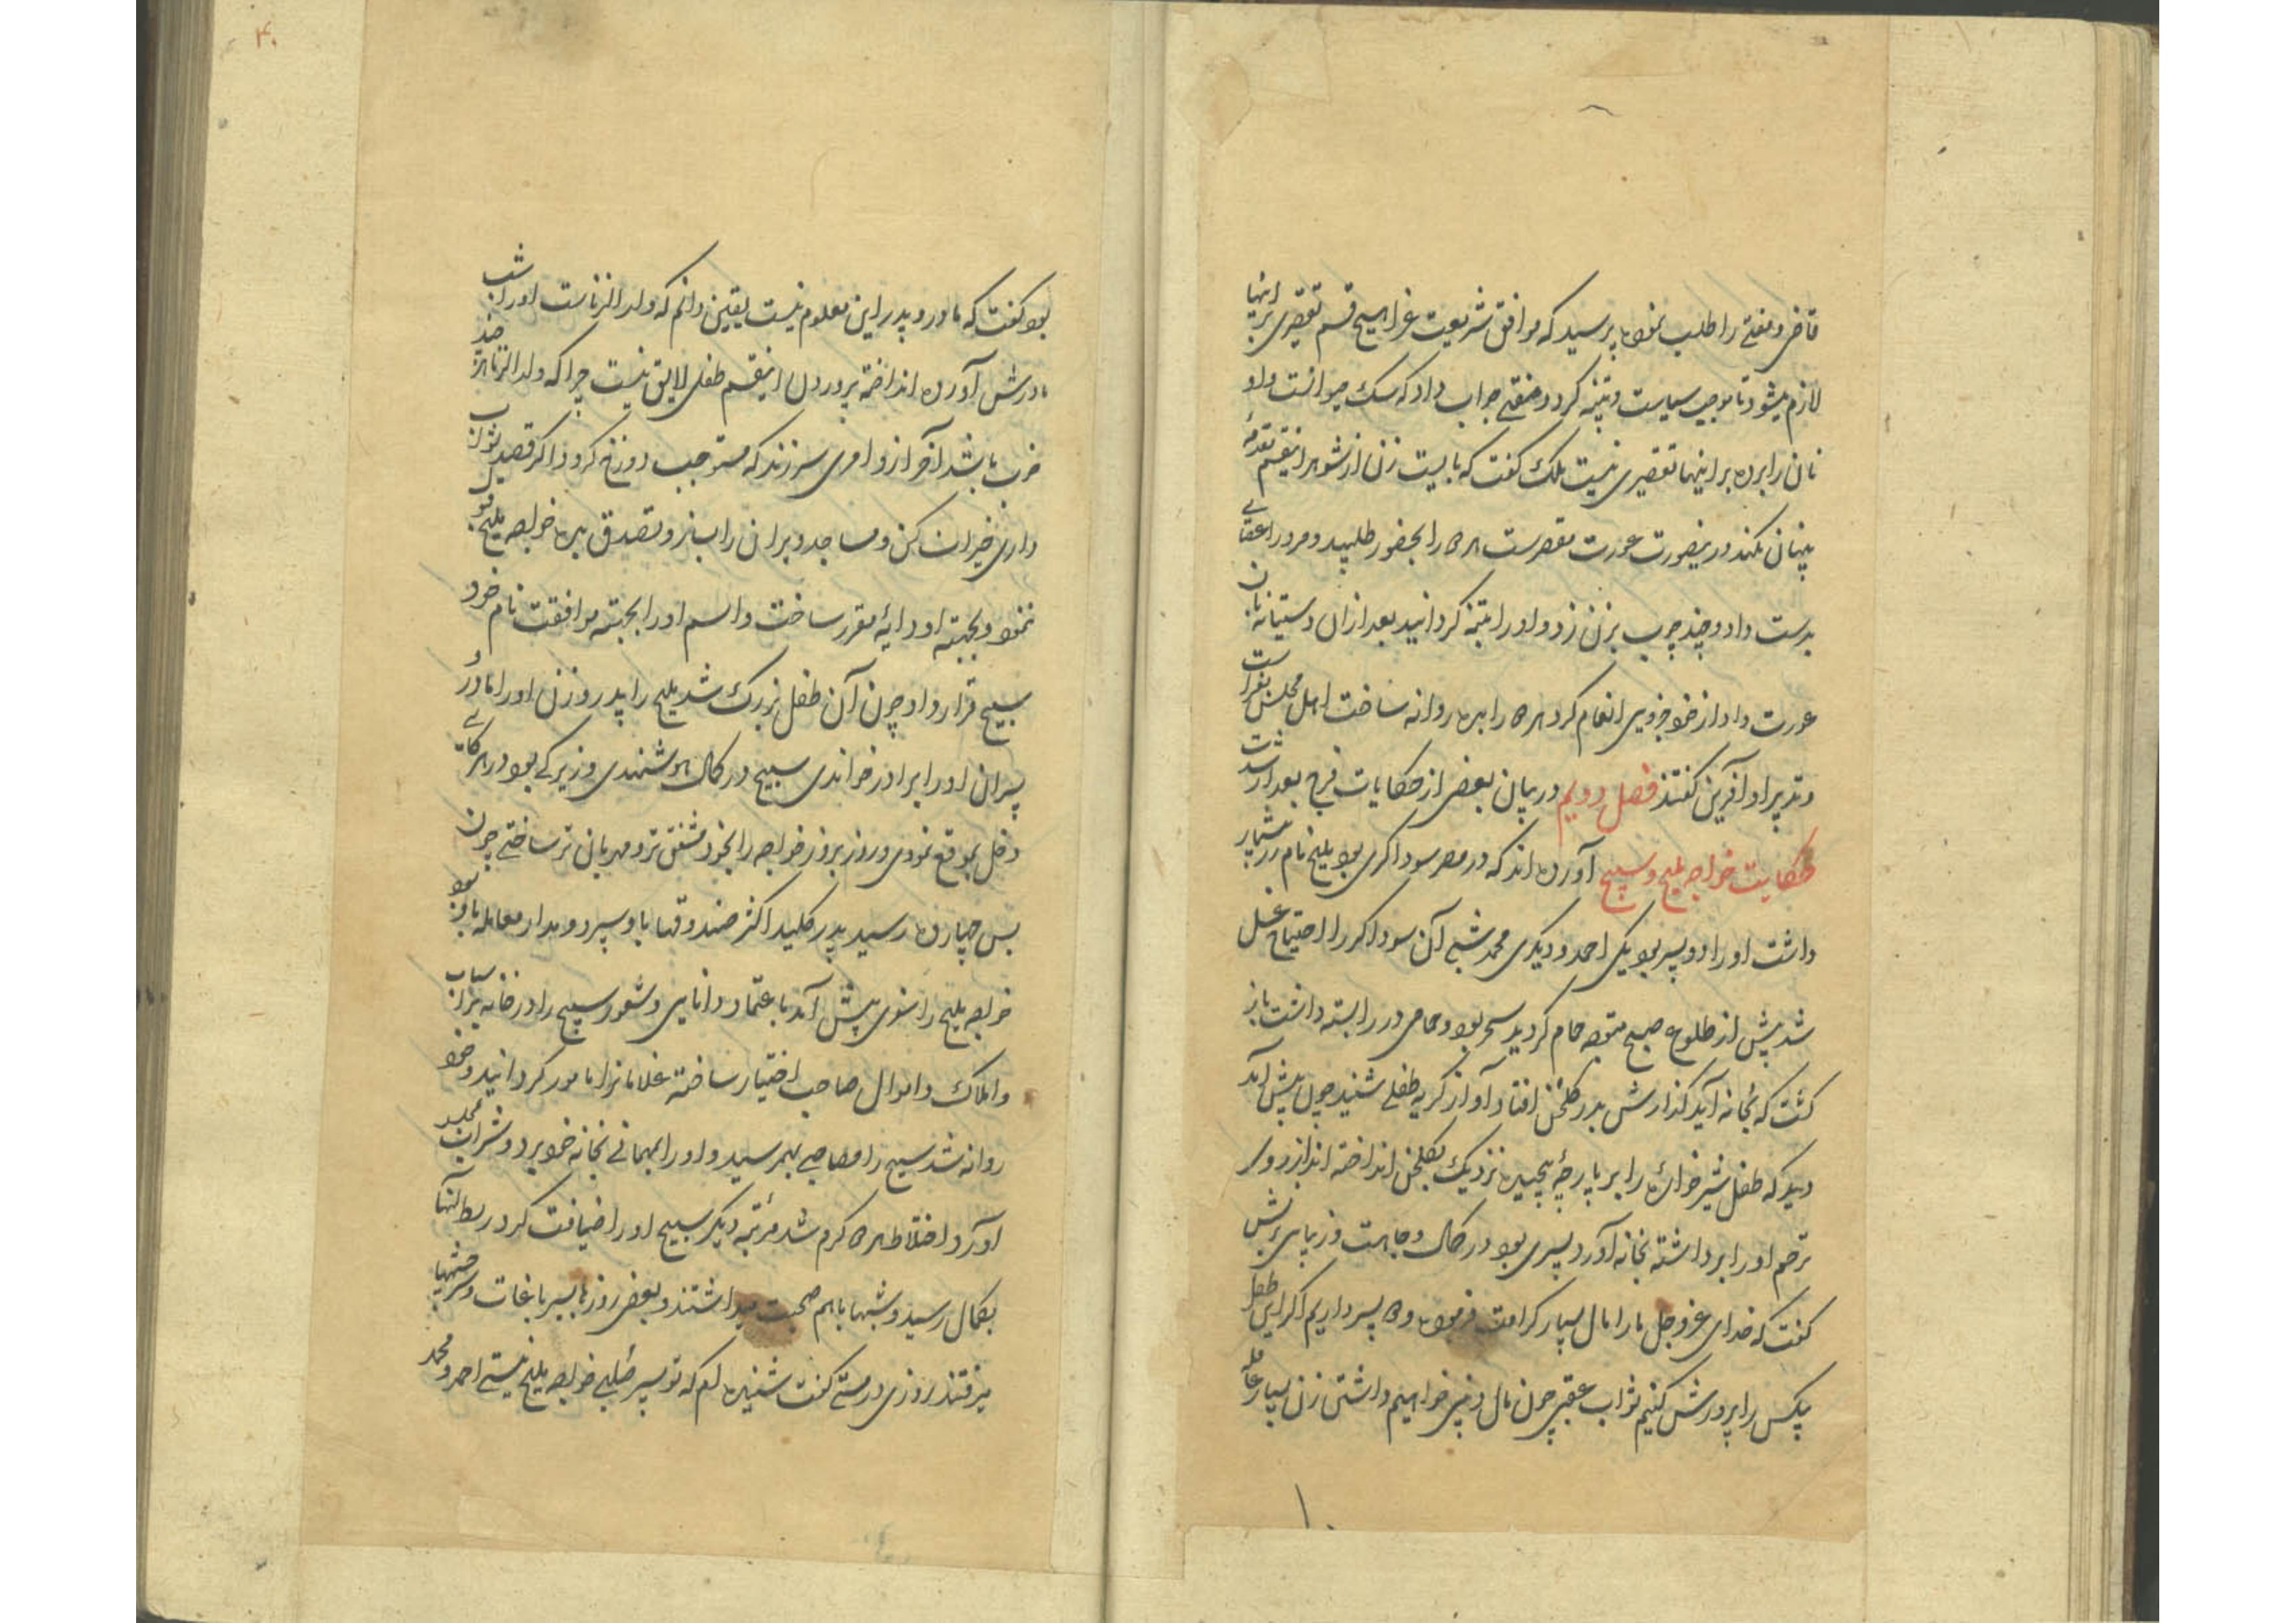 قاضی و مفتی را طلب نموده پرسید که موافق شریعت غرا هیچ قسم تقصیری بر اینها
لازم میشود تا موجب سیاست و تنبیه کردد مفتی جواب داد که سک حیوانست و او
نان را برده بر اینها تقصیری نیست ملک کفت که بایست زن از شوهر اینقسم
پنهان نکند درینصورت عورت مقصرست هر دو را بحضور طلبید و مرد را
بدست داد و چند چوب بزن زد و او را تنبیه کردانید بعد ازان نان
عورت داد از خود چیزی انعام کرد هر دو را بدر روانه ساخت اهل مجلس
و تدبیر او آفرین کفتند فصل دویم در بیان بعضی از حکایات فرج بعد از شدت
حکایت خواجه ملیح و سبیح آورده اند که در مصر سوداکری بود ملیح نام زر بیشمار
داشت او را دو پسر بود یکی احمد و دیکری محمد شبی آن سوداکر را احتیاج غسل
شد پیش از طلوع صبح متوجه حمام کردید سحر بود و حمامی در را بسته داشت باز
کشت که بخانه آید کذارش بدر کلخن افتاد آواز کریه طفلی شنید چون پیش آمد
دید که طفل شیرخواره را بر پارچه پیچیده نزدیک بکلخن انداخته اند از روی
ترحم او را برداشته بخانه آورد پسری بود در کمال وجاهت و زیبایی
کفت که خدای عز و جل ما را مال بسیار کرامت فرموده و دو پسر داریم اکر این طفل
بیکس را پرورش کنیم ثواب عقبی چون مال دنیی خواهیم داشت زن بسیار عاقله
بود کفت که مادر و پدر این معلوم نیست یقین دانم که ولد الزناست او را شب
مادرش آورده انداخته پروردن اینقسم طفل لایق نیست چرا که ولد الزنا هر چند
خوب باشد آخر ازو امری سر زند که مستوجب دوزخ کردد اکر قصد ثواب
داری خیرات کن و مساجد ویران را بساز و تصدق بده خواجه ملیح قبول
ننمود و بجهته او دایه مقرر ساخت و اسم او را بجهته موافقت نام خود
سبیح قرار داد چون آن طفل بزرک شد ملیح را پدر و زن او را مادر
پسران او را برادر خواندی سبیح در کمال هوشمندی و زیرکی بود در هر
دخل بموقع نمودی و روز بروز خواجه را بخود مشفق تر و مهربان تر ساختی چون
بسن چهارده رسید پدر کلید اکثر صندوقها باو سپرد و مدار معامله باو بود
خواجه ملیح را سفری پیش آمد باعتماد دانایی و شعور سبیح را در خانه بر اسباب
و املاک و اموال صاحب اختیار ساخته غلامانرا مامور کردانید و خود
روانه شد سبیح را مصاحبی بهم رسید و او را بمهمانی بخانه خود برد و شراب
آورد و اختلاط هر دو کرم شد مرتبه دیکر سبیح او را ضیافت کرد ربط آنها
بکمال رسید و شبها باهم صحبت میداشتند و بعضی روزها بسیر باغات و
میرفتند روزی در مستی کفت شنیده ام که تو پسر صلبی خواجه ملیح نیستی احمد و محمد